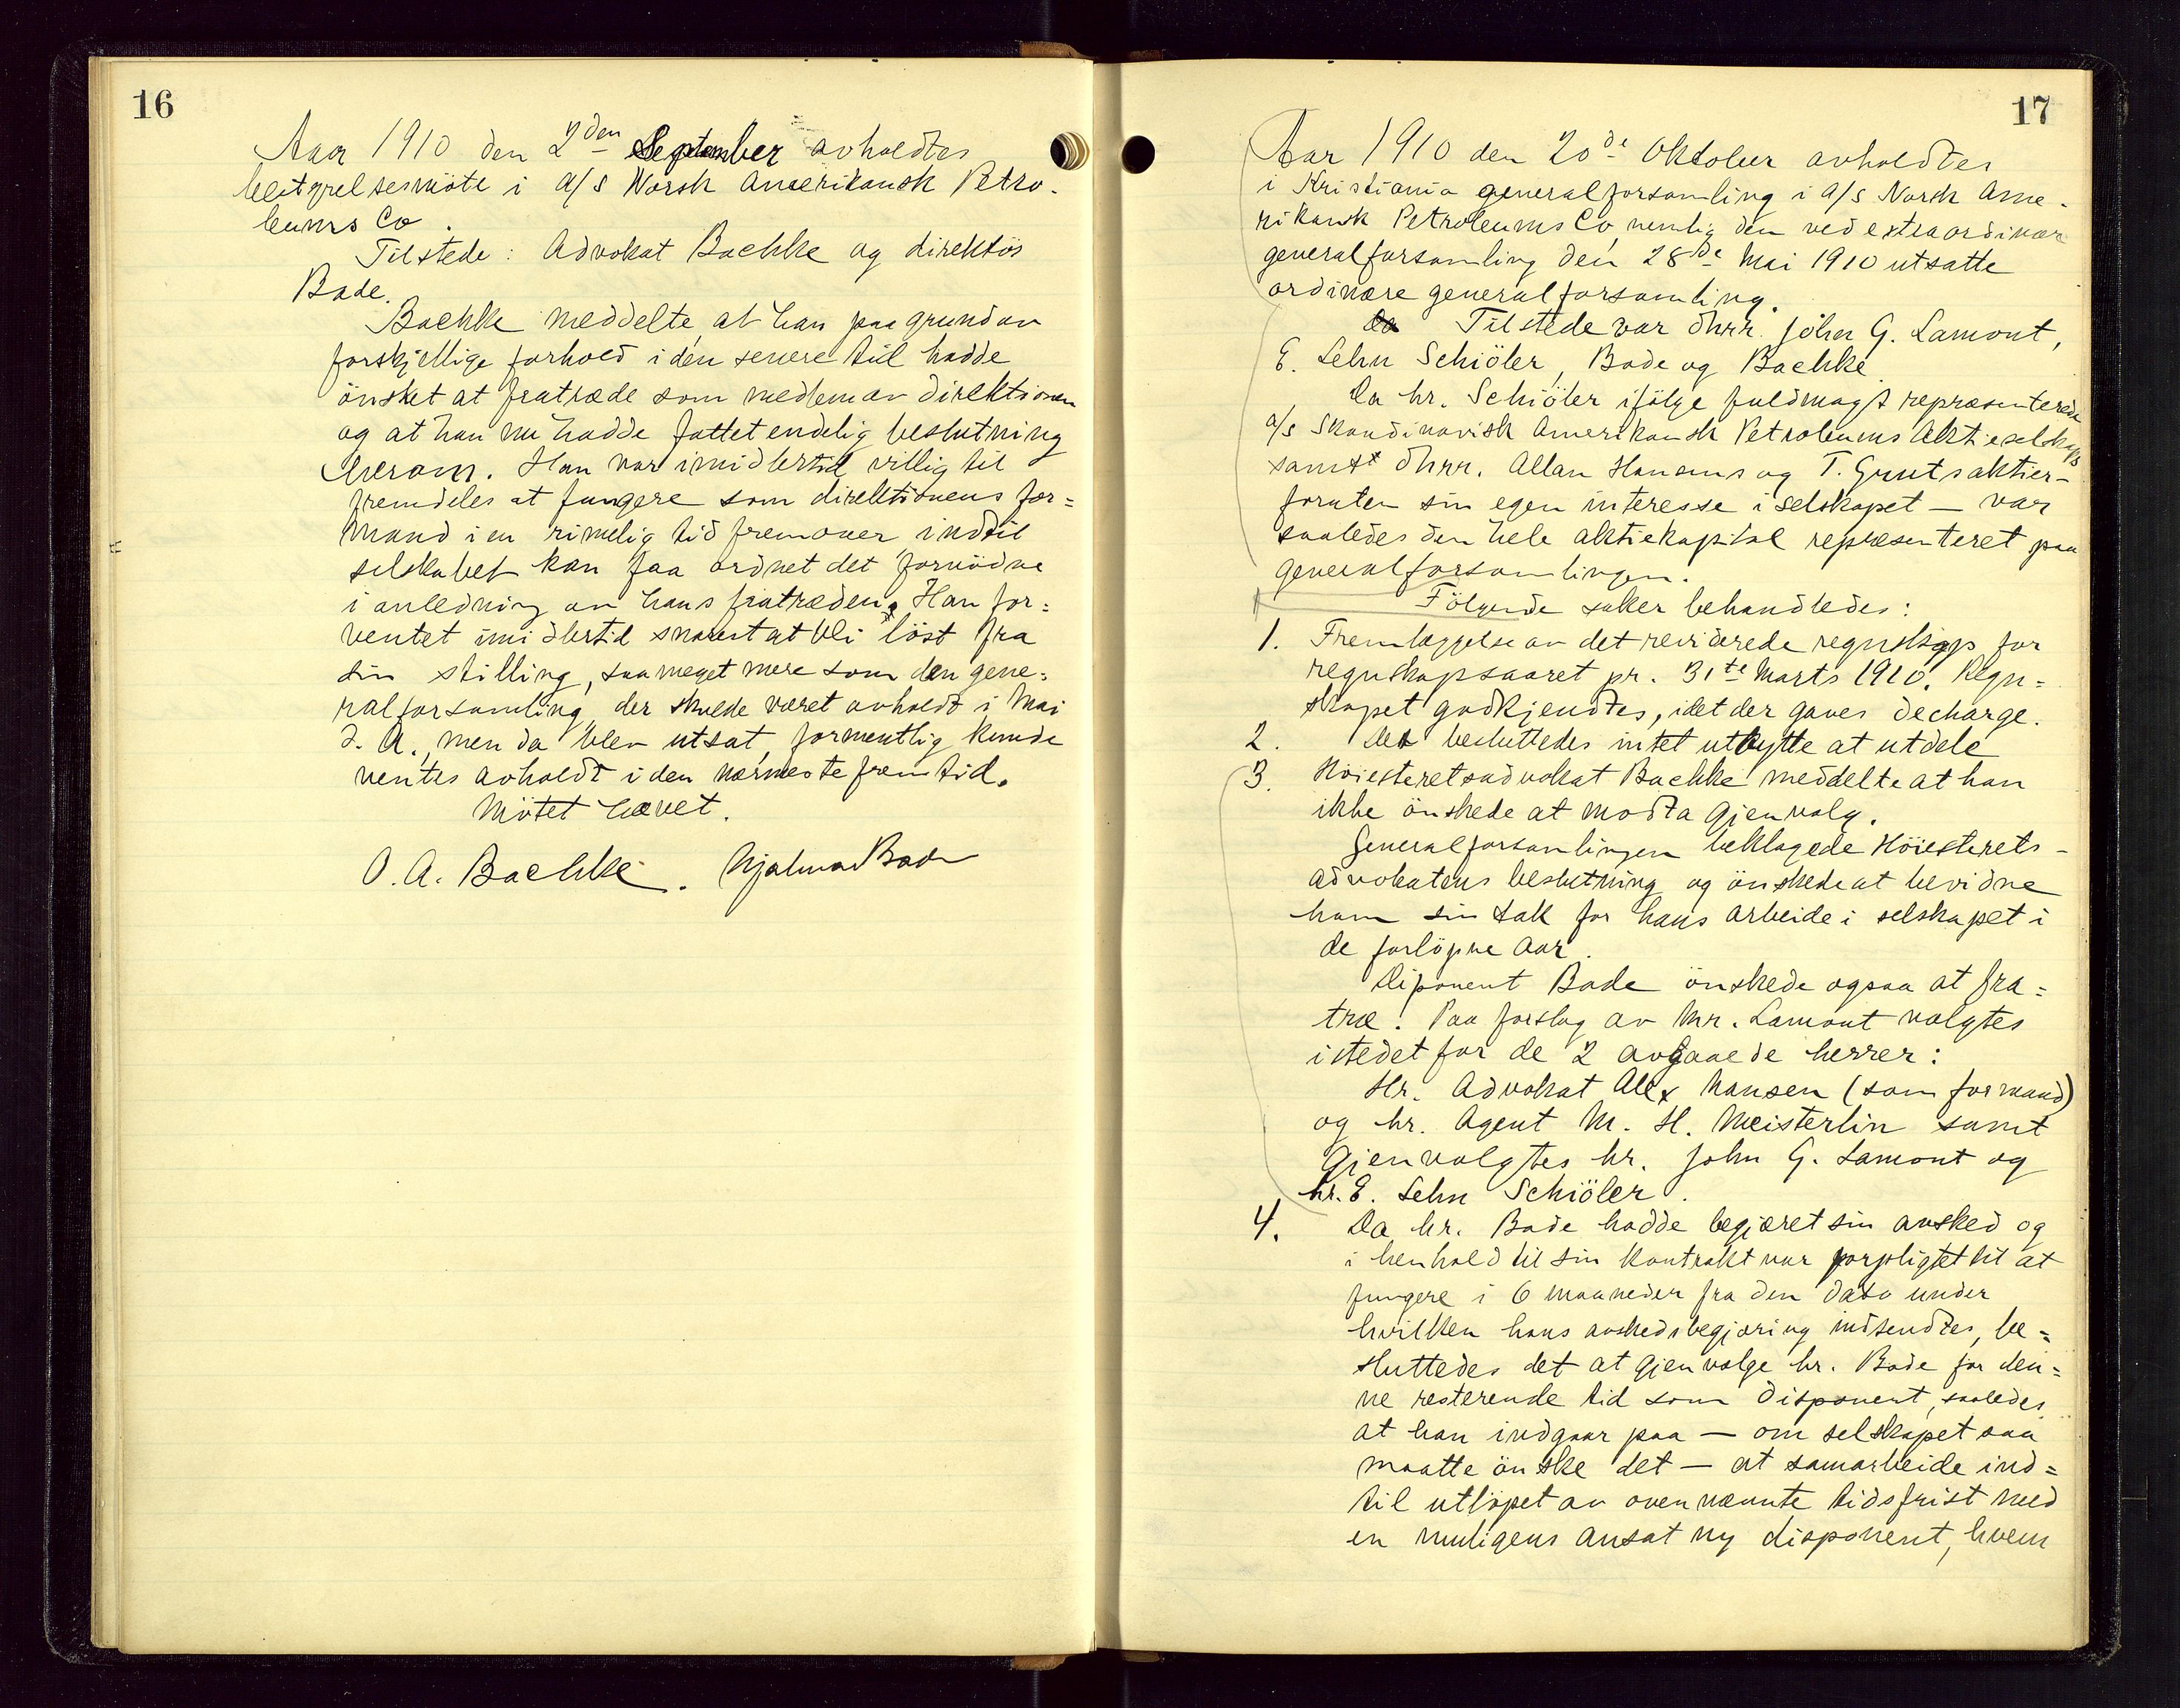 16
Aar 1910 den 2den September avholdtes
bestyrelsesmöte i A/S Norsk Amerikansk Petro-
leums Co.
Tilstede: Advokat Bachke og direktör
Bade.
Bachke meddelte, at han paa grund av
forskjellige forhold i den senere tid hadde
önsket at fratræde som medlem av direktionen
og at han nu hadde fattet endelig beslutning
herom. Han var imidlertid villig til
fremdeles at fungere som direktionens for=
mand i en rimelig tid fremover indtil
selskabet kan faa ordnet det fornödne
i anledning av hans fratræden. Han for=
ventet imidlertid snarest at bli löst fra
sin stilling, saameget mere som den gene=
ralforsamling, der skulde været avholdt i Mai
d. A., men da blev utsat, formentlig kunde
ventes avholdt i den nærmeste fremtid.
Mötet hævet.
O. A. Bachke. Hjalmar Bade
17
Aar 1910 den 20de Oktober avholdtes
i Kristiania generalforsamling i A/S Norsk Ame-
rikansk Petroleums Co, nemlig den ved extraordinær
generalforsamling den 28de Mai 1910 utsatte
ordinære generalforsamling.
Da Tilstede var dhrr. John G. Lamont,
E. Lehn Schiöler, Bade og Bachke.
Da hr. Schiöler ifölge fuldmagt repræsenterede
A/S Skandinavisk Amerikansk Petroleums Aktieselskaps
samt dhrr. Allan Hanems og T. Gruuts aktier-
foruten sin egen interesse i selskapet — var
saaledes den hele aktiekapital repræsenteret paa
generalforsamlingen.
Fölgende saker behandledes:
1. Fremlæggelse av det reviderede regnskap for
regnskapsaaret pr. 31te Marts 1910. Regn=
skapet godkjendtes, idet der gaves decharge.
2. Det besluttedes intet utbytte at utdele
3. Höiesteretsadvokat Bachke meddelte at han
ikke önskede at modta gjenvalg.
Generalforsamlingen beklagede Höiesterets-
advokatens beslutning og önskede at bevidne
ham sin tak for hans arbeide i selskapet i
de forlöpne aar.
Disponent Bade önskede ogsaa at fra=
træ. Paa forslag av Mr. Lamont valgtes
istedet for de 2 avgaaede herrer:
Hr. Advokat Alex Nansen (som formand)
og hr. Agent M. H. Meisterlin samt
gjenvalgtes hr. John G. Lamont og
hr. E. Lehn Schiöler.
4. Da hr. Bade hadde begjæret sin avsked og
i henhold til sin kontrakt var forpligtet til at
fungere i 6 maaneder fra den dato under
hvilken hans avskedsbegjæring indsendtes, be=
sluttedes det at gjenvælge hr. Bade for den=
ne resterende tid som disponent, saaledes
at han indgaar paa — om selskapet saa
maatte önske det — at samarbeide ind=
til utlöpet av ovennævnte tidsfrist med
en muligens ansat ny disponent, hvem